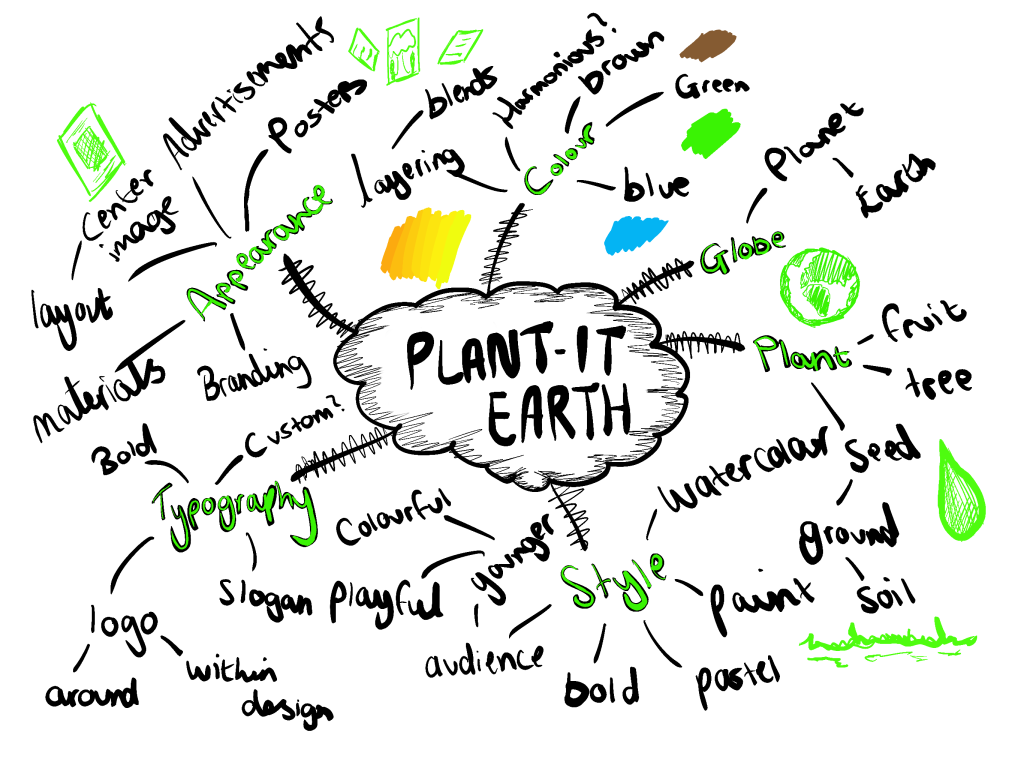 PLANT-IT
EARTH
Appearance
Advertisements
Posters
Center
image
layout
materials
Branding
Colour
layering
blends
Harmonious?
brown
Green
blue
Globe
Planet
Earth
Plant
fruit
tree
Seed
ground
Soil
Style
Watercolour
paint
pastel
bold
audience
younger
Colourful
Playful
Typography
Bold
Custom?
Slogan
logo
around
within
design